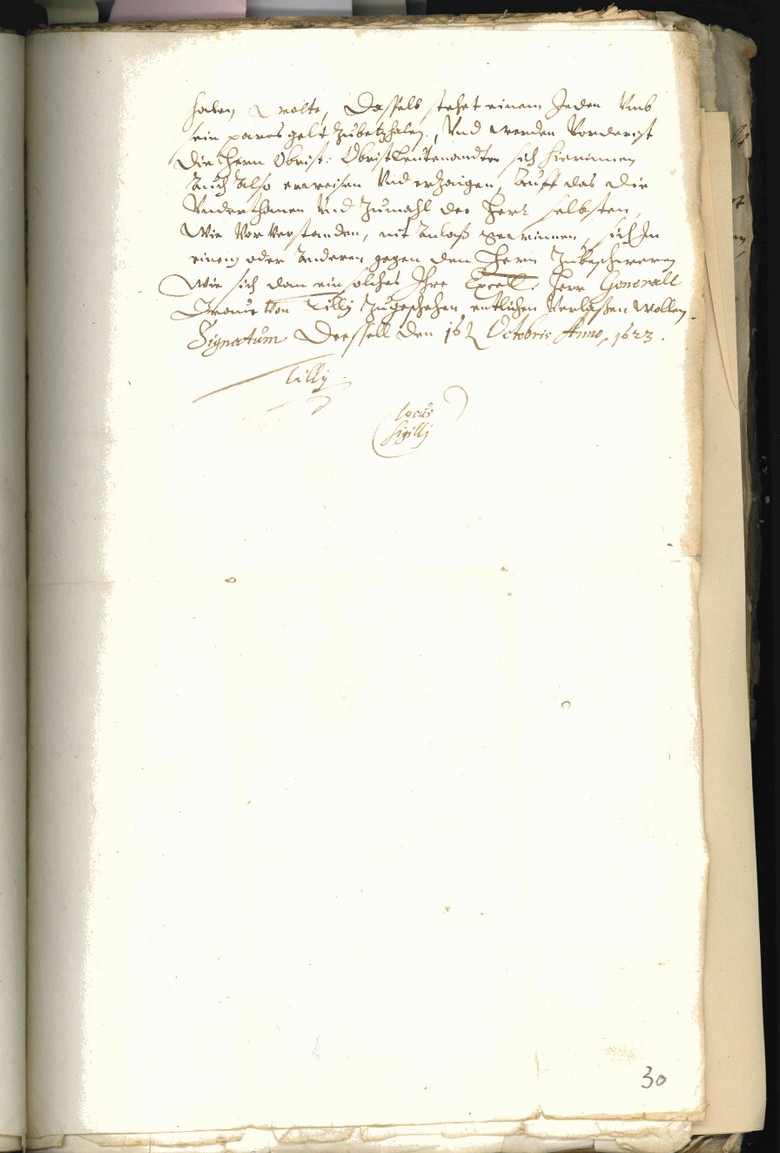 haben, wolte, Dasselb stehet einem Jeden Vmb
ein pares gelt Zubetzhalen, Vnd werden Vorderist
die Herrn Obrist: Obristleutenandten sich hierinnen
Auch also erweisen Vnd erzaigen, Auff das die
Vnderthanen Vnd Zumahl der Herr selbsten,
Wie Vor Verstanden, nit Anlaß gewinnen, sich In
einem oder Anderen gegen den Herrn Zubeschweren
Wie sich dan ein solches Ihre Excell: Herr Generall
Graue Von Tilly Zugeschehen entlichen Verlaßen wollen.
Signatum Dressell den 16 Octobris Anno, 1623.
Tilly
Locus
Sigilly
30